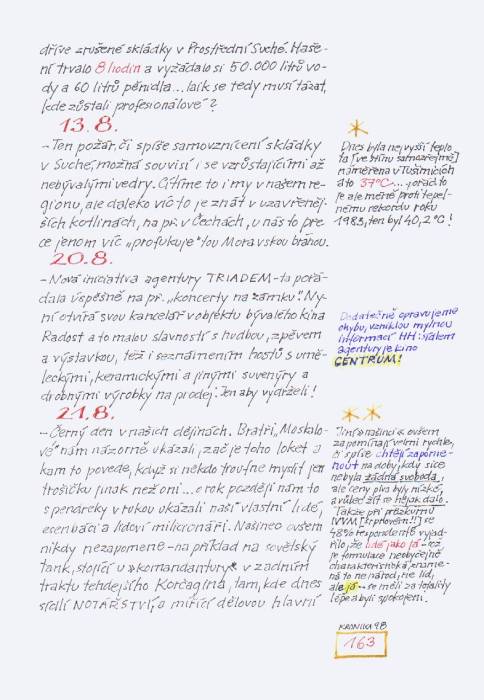 dříve zrušené skládky v Prostřední Suché. Haše-
ní trvalo 8 hodin a vyžádalo si 50.000 litrů vo-
dy a 60 litrů pěnidla... laik se tedy musí tázat,
kde zůstali profesionálové?
13.8.
- Ten požár, či spíše samovznícení skládky
v Suché, možná souvisí i se vzrůstajícími až
nebývalými vedry. Cítíme to i my v našem re-
gionu, ale daleko víc to je znát v uzavřeněj-
ších kotlinách, na př. v Čechách, u nás to pře-
ce jenom víc "profukuje" tou Moravskou bránou.
20.8.
- Nová iniciativa agentury TRIADEM - ta pořá-
dala úspěšně na př. "koncerty na zámku". Ny-
ní otvírá svou kancelář v objektu bývalého kina
Radost a to malou slavností s hudbou, zpěvem
a výstavkou, též i seznámením hostů s umě-
leckými, keramickými a jinými suvenýry a
drobnými výrobky na prodej. Jen aby vydrželi!
21.8.
- Černý den v našich dějinách. Bratři "Moskalo-
vé" nám názorně ukázali, zač je toho loket a
kam to povede, když si někdo troufne myslit jen
trošičku jinak než oni... o rok později nám to
s pendreky v rukou ukázali naši vlastní lidé,
esenbáci a lidoví milicionáři. Našinec ovšem
nikdy nezapomene - na příklad na sovětský
tank, stojící u "komandantury" v zadním
traktu tehdejšího Korčagina, tam, kde dnes
sídlí NOTÁŘSTVÍ, a mířící dělovou hlavní
*
Dnes byla nejvyšší teplo-
ta [ve stínu samozřejmě]
naměřena v Tušimicích
a to 37°C... pořád to
je ale méně proti tepel-
nému rekordu roku
1983, ten byl 40,2°C!
Dodatečně opravujeme
chybu, vzniklou mylnou
informací HH: sídlem
agentury je kino
CENTRUM!
**
Jiní našinci ovšem
zapomínají velmi rychle,
či spíše chtějí zapome-
nout na doby, kdy sice
nebyla žádná svoboda,
ale ceny piva byly nízké,
a vůbec žít se nějak dalo.
Takže při průzkumu
IVVM se
48% respondentů vyjád-
řilo, že lidé jako já - což
je formulace neobyčejně
charakteristická, zname-
ná to ne národ, ne lid,
ale já - se měli za totality
lépe a byli spokojeni.
KRONIKA 98
163